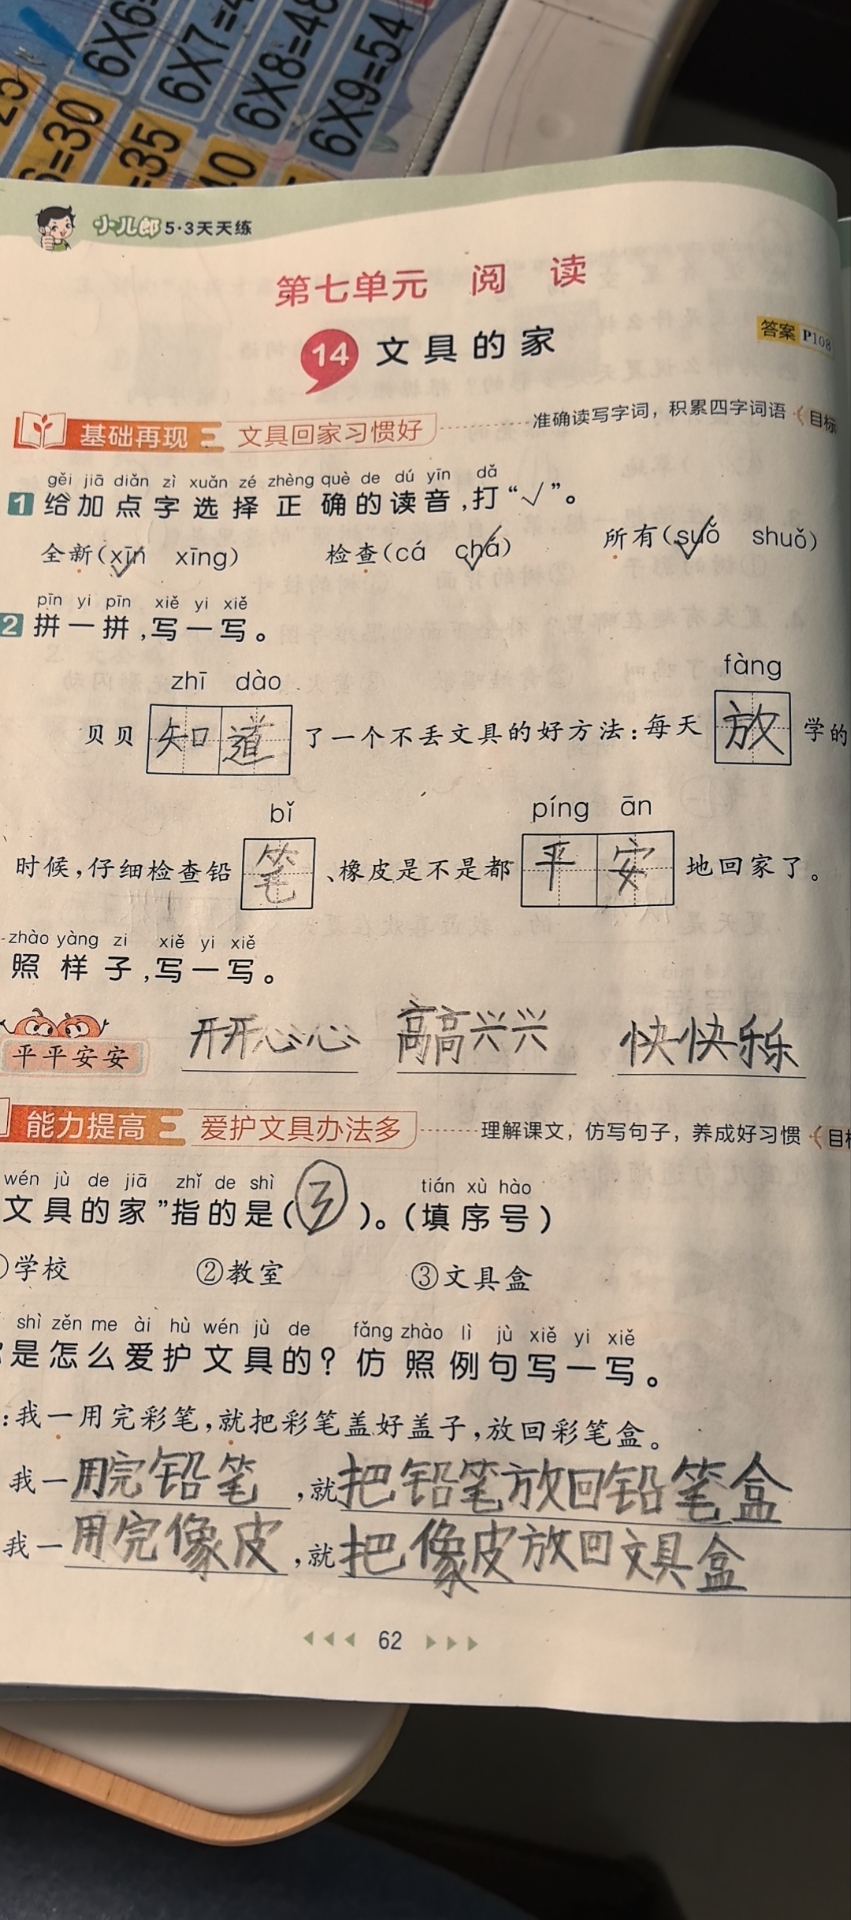 6X6=
6X7=4
6X8=48
6X9=54
25
6=30
=35
40
小儿郎 5·3天天练
第七单元 阅 读
14 文具的家
答案 P108
基础再现 文具回家习惯好 准确读写字词，积累四字词语 目标
gěi jiā diǎn zì xuǎn zé zhèng què de dú yīn dǎ
1 给加点字选择正确的读音,打“√”。
全新(xīn xīng) 检查(cá chá) 所有(suǒ shuǒ)
pīn yi pīn xiě yi xiě
2 拼一拼,写一写。
zhī dào fàng
贝贝 知道 了一个不丢文具的好方法:每天 放 学的
bǐ píng ān
时候,仔细检查铅 笔 、橡皮是不是都 平安 地回家了。
zhào yàng zi xiě yi xiě
照样子,写一写。
平平安安 开开心心 高高兴兴 快快乐乐
能力提高 爱护文具办法多 理解课文，仿写句子，养成好习惯 目标
wén jù de jiā zhǐ de shì tián xù hào
文具的家”指的是(③)。(填序号)
学校 ②教室 ③文具盒
shì zěn me ài hù wén jù de fǎng zhào lì jù xiě yi xiě
是怎么爱护文具的?仿照例句写一写。
:我一用完彩笔,就把彩笔盖好盖子,放回彩笔盒。
我一用完铅笔,就把铅笔放回铅笔盒
我一用完像皮,就把像皮放回文具盒
62